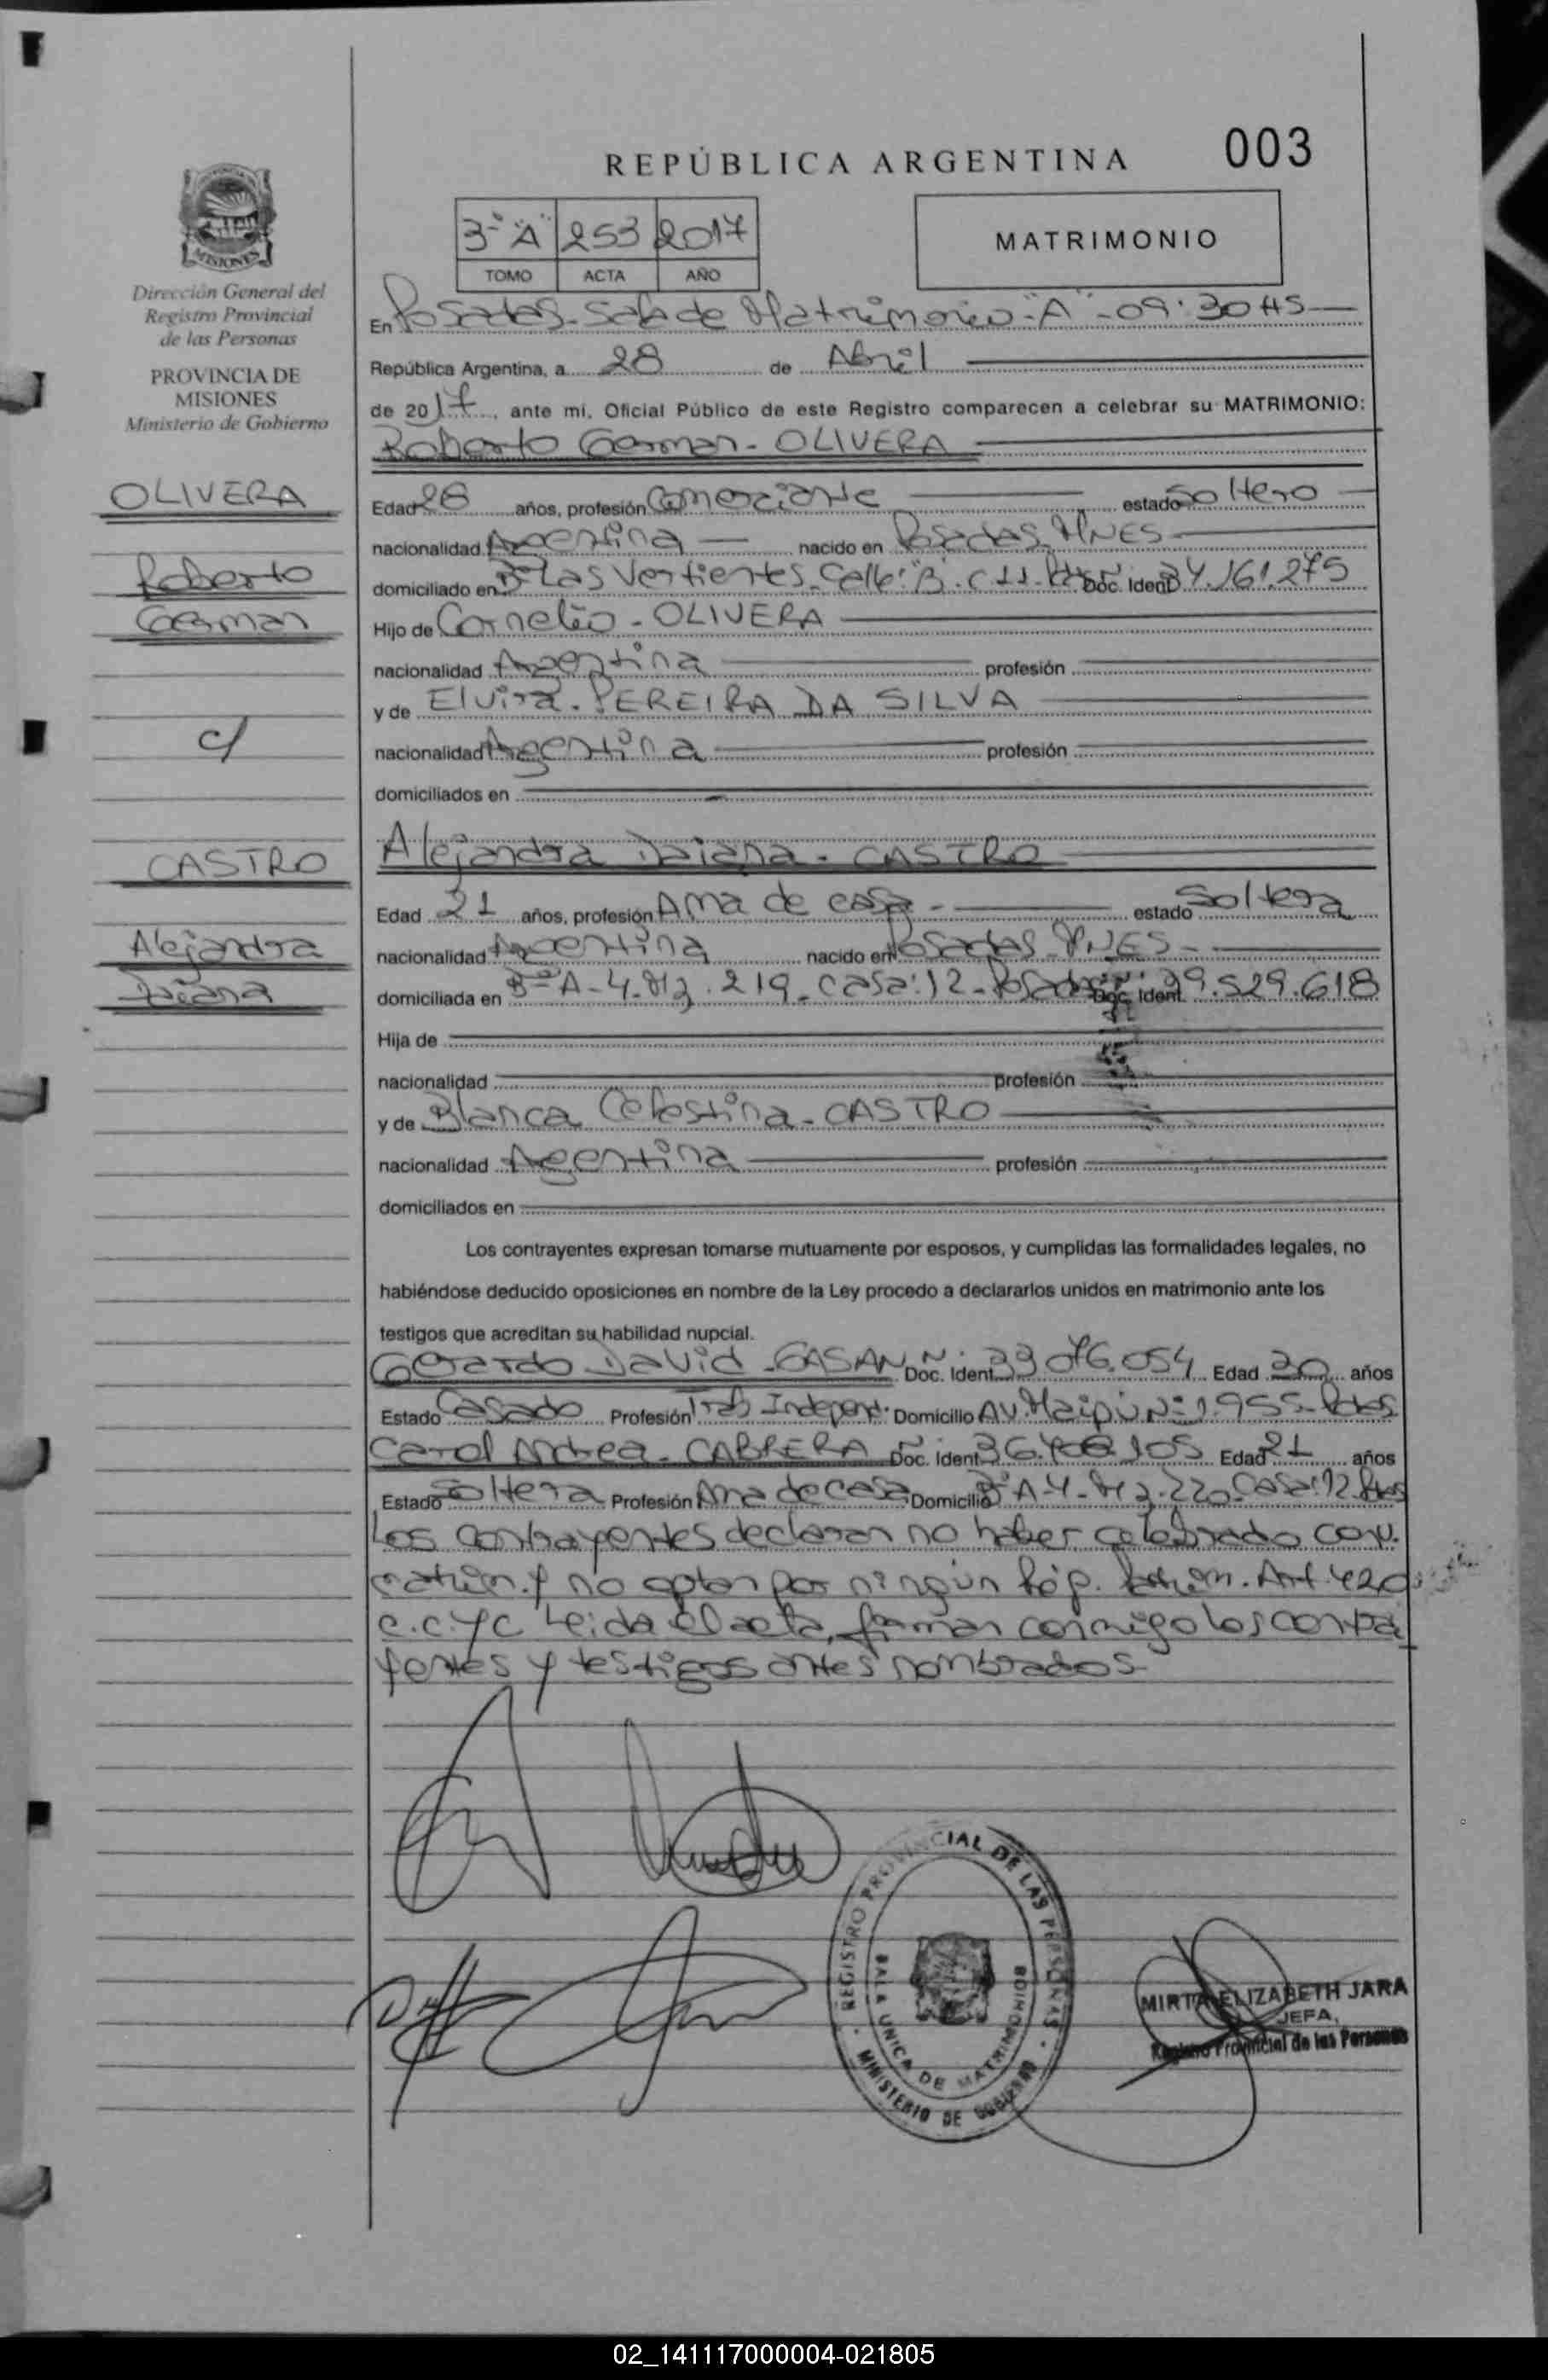 REPÚBLICA ARGENTINA
003
3º "A" 253 2017
TOMO ACTA AÑO
MATRIMONIO
MISIONES
Dirección General del
Registro Provincial
de las Personas
PROVINCIA DE
MISIONES
Ministerio de Gobierno
OLIVERA
Roberto
German
c/
CASTRO
Alejandra
Daiana
En Posadas - Sala de Matrimonio - "A" - 09:30 HS
República Argentina, a 28 de Abril
de 2017, ante mi, Oficial Público de este Registro comparecen a celebrar su MATRIMONIO:
Roberto German - OLIVERA
Edad 28 años, profesión Comerciante estado Soltero
nacionalidad Argentina nacido en Posadas, MNES
domiciliado en Bº Las Vertientes - Calle: "B". C 11 - Doc. Ident 34.161.275
Hijo de Cornelio - OLIVERA
nacionalidad Argentina profesión
y de Elvira - PEREIRA DA SILVA
nacionalidad Argentina profesión
domiciliados en
Alejandra Daiana - CASTRO
Edad 21 años, profesión Ama de casa - estado Soltera
nacionalidad Argentina nacido en Posadas MNES -
domiciliada en Bº A-4. Mz. 219 - casa: 12 - Posadas Doc. Ident. 39.529.618
Hija de
nacionalidad profesión
y de Blanca Celestina - CASTRO
nacionalidad Argentina profesión
domiciliados en
Los contrayentes expresan tomarse mutuamente por esposos, y cumplidas las formalidades legales, no
habiéndose deducido oposiciones en nombre de la Ley procedo a declararlos unidos en matrimonio ante los
testigos que acreditan su habilidad nupcial.
Gerardo David - GASAN Doc. Ident 33.076.054 Edad 30 años
Estado Casado Profesión Trab Independ. Domicilio AV. Maipú Nº 1.955 - Pdas
Carol Andrea - CABRERA Doc. Ident Edad 21 años
Estado Soltera Profesión Ama de casa Domicilio Bº A 4 - Mz. 220 - Casa: 12 Pdas
Los contrayentes declaran no haber celebrado conv.
matrim. y no optan por ningún Rég. Patrim. Art. 420
C.C.YC Leida el acta, firman conmigo los contra
yentes y testigos antes nombrados
REGISTRO PROVINCIAL DE LAS PERSONAS
SALA UNICA DE MATRIMONIOS
MINISTERIO DE GOBIERNO
MIRTA ELIZABETH JARA
JEFA
Registro Provincial de las Personas
02_141117000004-021805